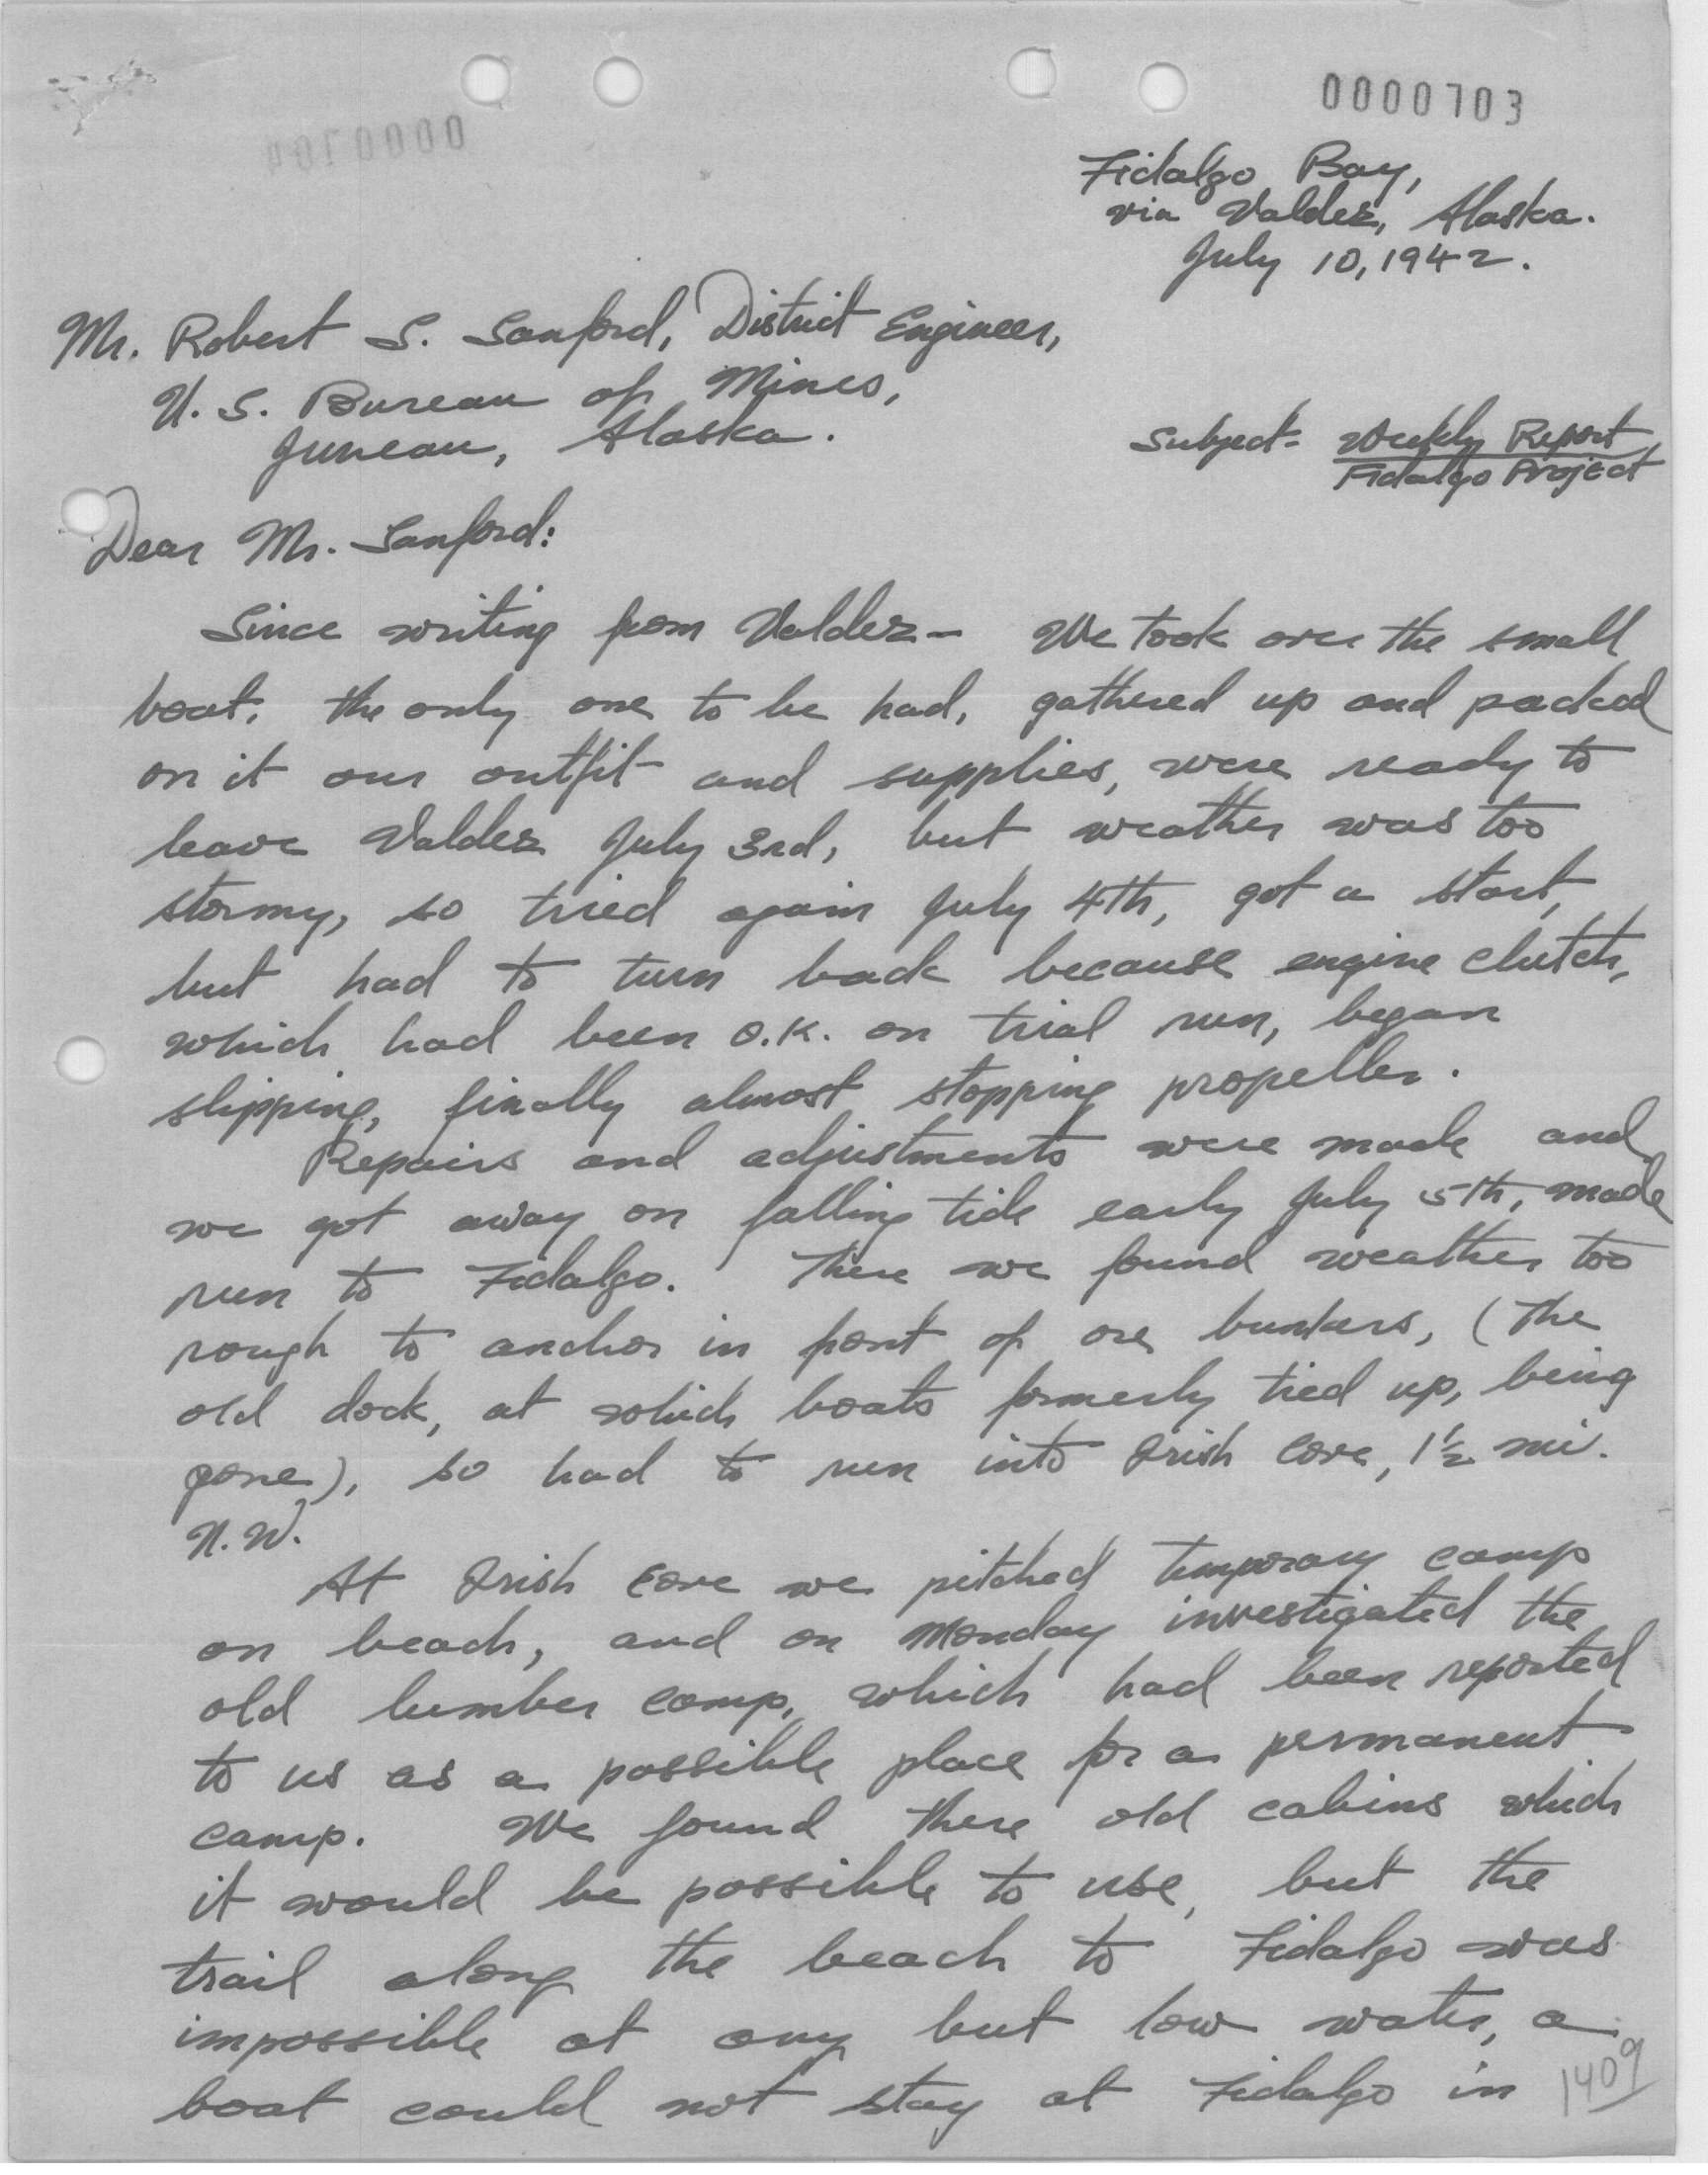 0000703
0000704
Fidalgo Bay,
via Valdez, Alaska.
July 10, 1942.
Mr. Robert S. Sanford, District Engineer,
U. S. Bureau of Mines,
Juneau, Alaska.
Subject- Weekly Report
Fidalgo Project
Dear Mr. Sanford:
Since writing from Valdez- We took over the small
boat, the only one to be had, gathered up and packed
on it our outfit and supplies, were ready to
leave Valdez July 3rd, but weather was too
stormy, so tried again July 4th, got a start,
but had to turn back because engine clutch,
which had been O.K. on trial run, began
slipping, finally almost stopping propeller.
Repairs and adjustments were made and
we got away on falling tide early July 5th, made
run to Fidalgo. There we found weather too
rough to anchor in front of ore bunkers, (the
old dock, at which boats formerly tied up, being
gone), so had to run into Irish Cove, 1½ mi.
N.W.
At Irish Cove we pitched temporary camp
on beach, and on Monday investigated the
old lumber camp, which had been reported
to us as a possible place for a permanent
camp. We found there old cabins which
it would be possible to use, but the
trail along the beach to Fidalgo was
impossible at any but low water, a
boat could not stay at Fidalgo in
1409